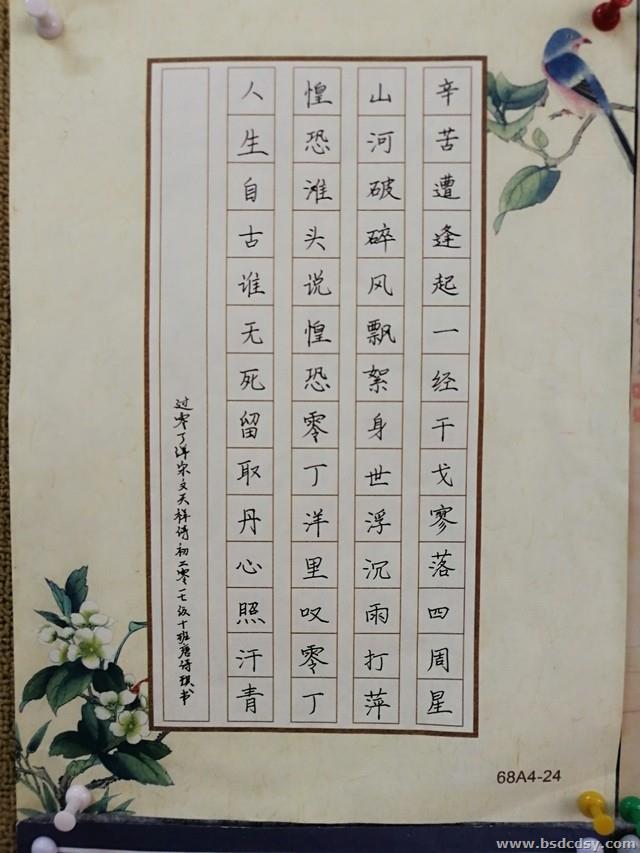 辛苦遭逢起一经干戈寥落四周星
山河破碎风飘絮身世浮沉雨打萍
惶恐滩头说惶恐零丁洋里叹零丁
人生自古谁无死留取丹心照汗青
过零丁洋宋文天祥诗初二零一七级十班唐诗琪书
68A4-24
www.bsdcdsy.com